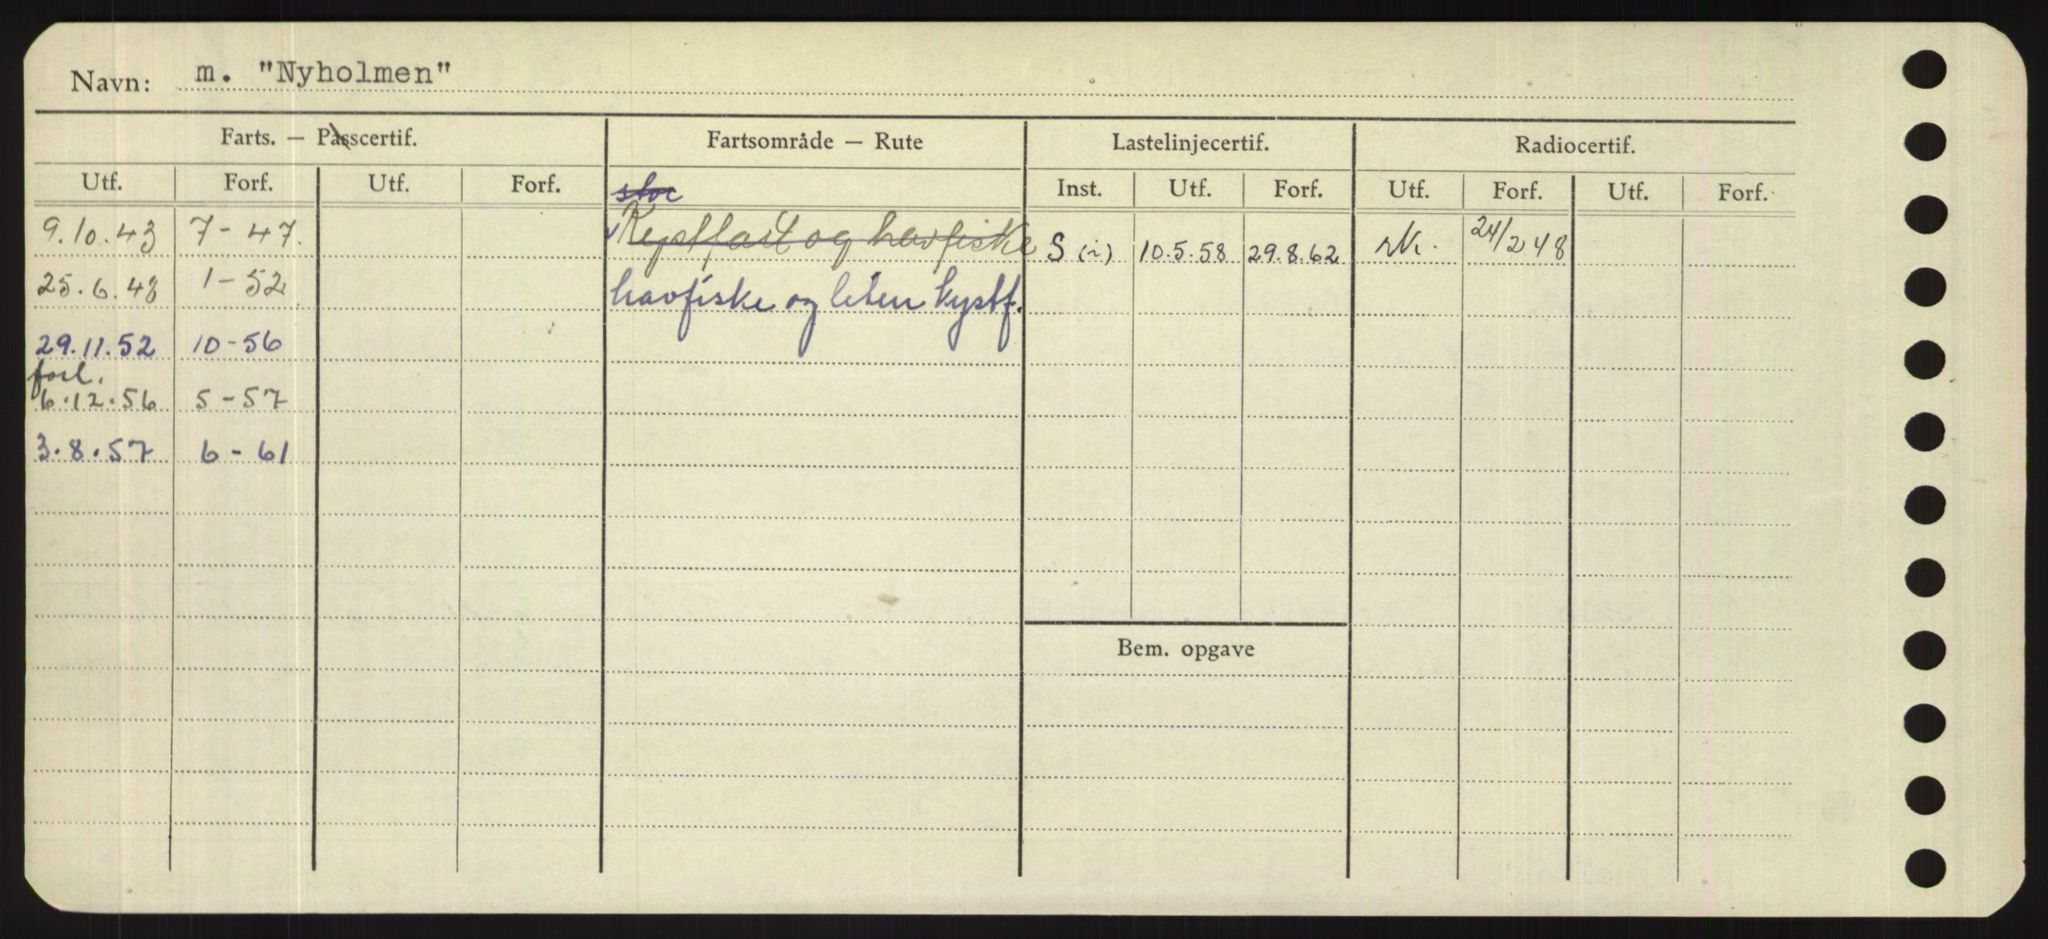 Navn: m. "Nyholmen"
Farts. — Passcertif. Fartsområde — Rute Lastelinjecertif. Radiocertif.
Utf. Forf. Utf. Forf. Inst. Utf. Forf. Utf. Forf. Utf. Forf.
stor
9.10.43 7-47. Kystfart og havfiske S (i) 10.5.58 29.8.62 24/2 48
25.6.48 1-52 havfiske og liten kystf.
29.11.52 10-56
forl.
6.12.56 5-57
3.8.57 6-61
Bem. opgave